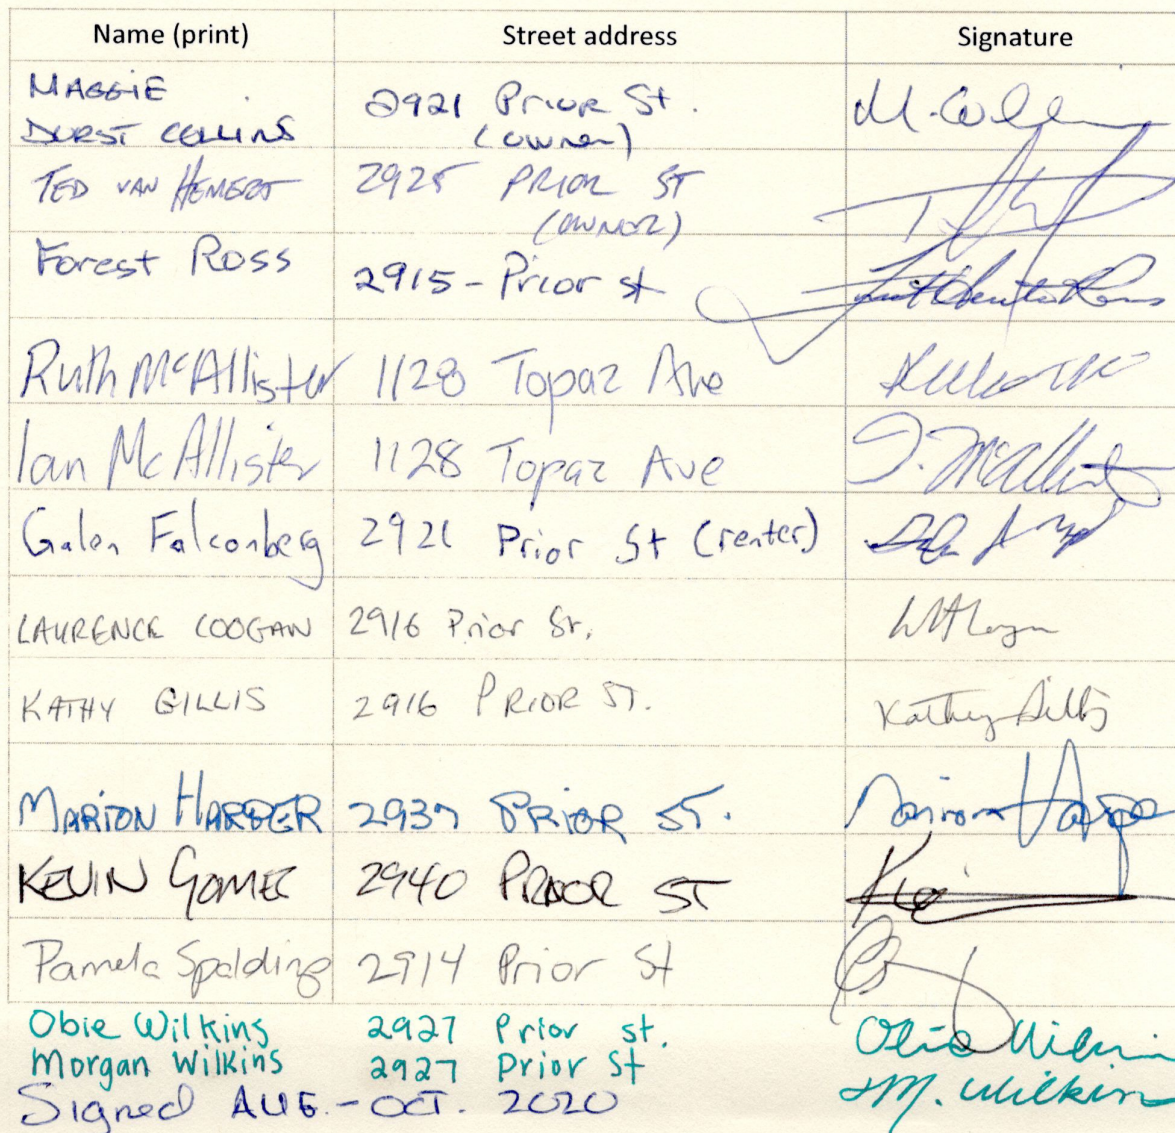 Name (print) Street address Signature
MAGGIE
DURST COLLINS 2921 Prior St.
(owner) M. Coll
TED VAN HEMERT 2925 PRIOR ST
(OWNOR)
Forest Ross 2915 - Prior st
Ruth McAllister 1128 Topaz Ave
Ian McAllister 1128 Topaz Ave I. McAllister
Galen Falconberg 2921 Prior St (renter)
LAURENCE COOGAN 2916 Prior St.
KATHY GILLIS 2916 PRIOR ST. Kathy Gillis
MARION HARPER 2937 PRIOR ST. Marion Harper
KEVIN GOMEZ 2940 PRIOR ST
Pamela Spalding 2914 Prior St
Obie Wilkins 2927 Prior st. Obie Wilkins
Morgan Wilkins 2927 Prior St M. Wilkins
Signed AUG. - OCT. 2020